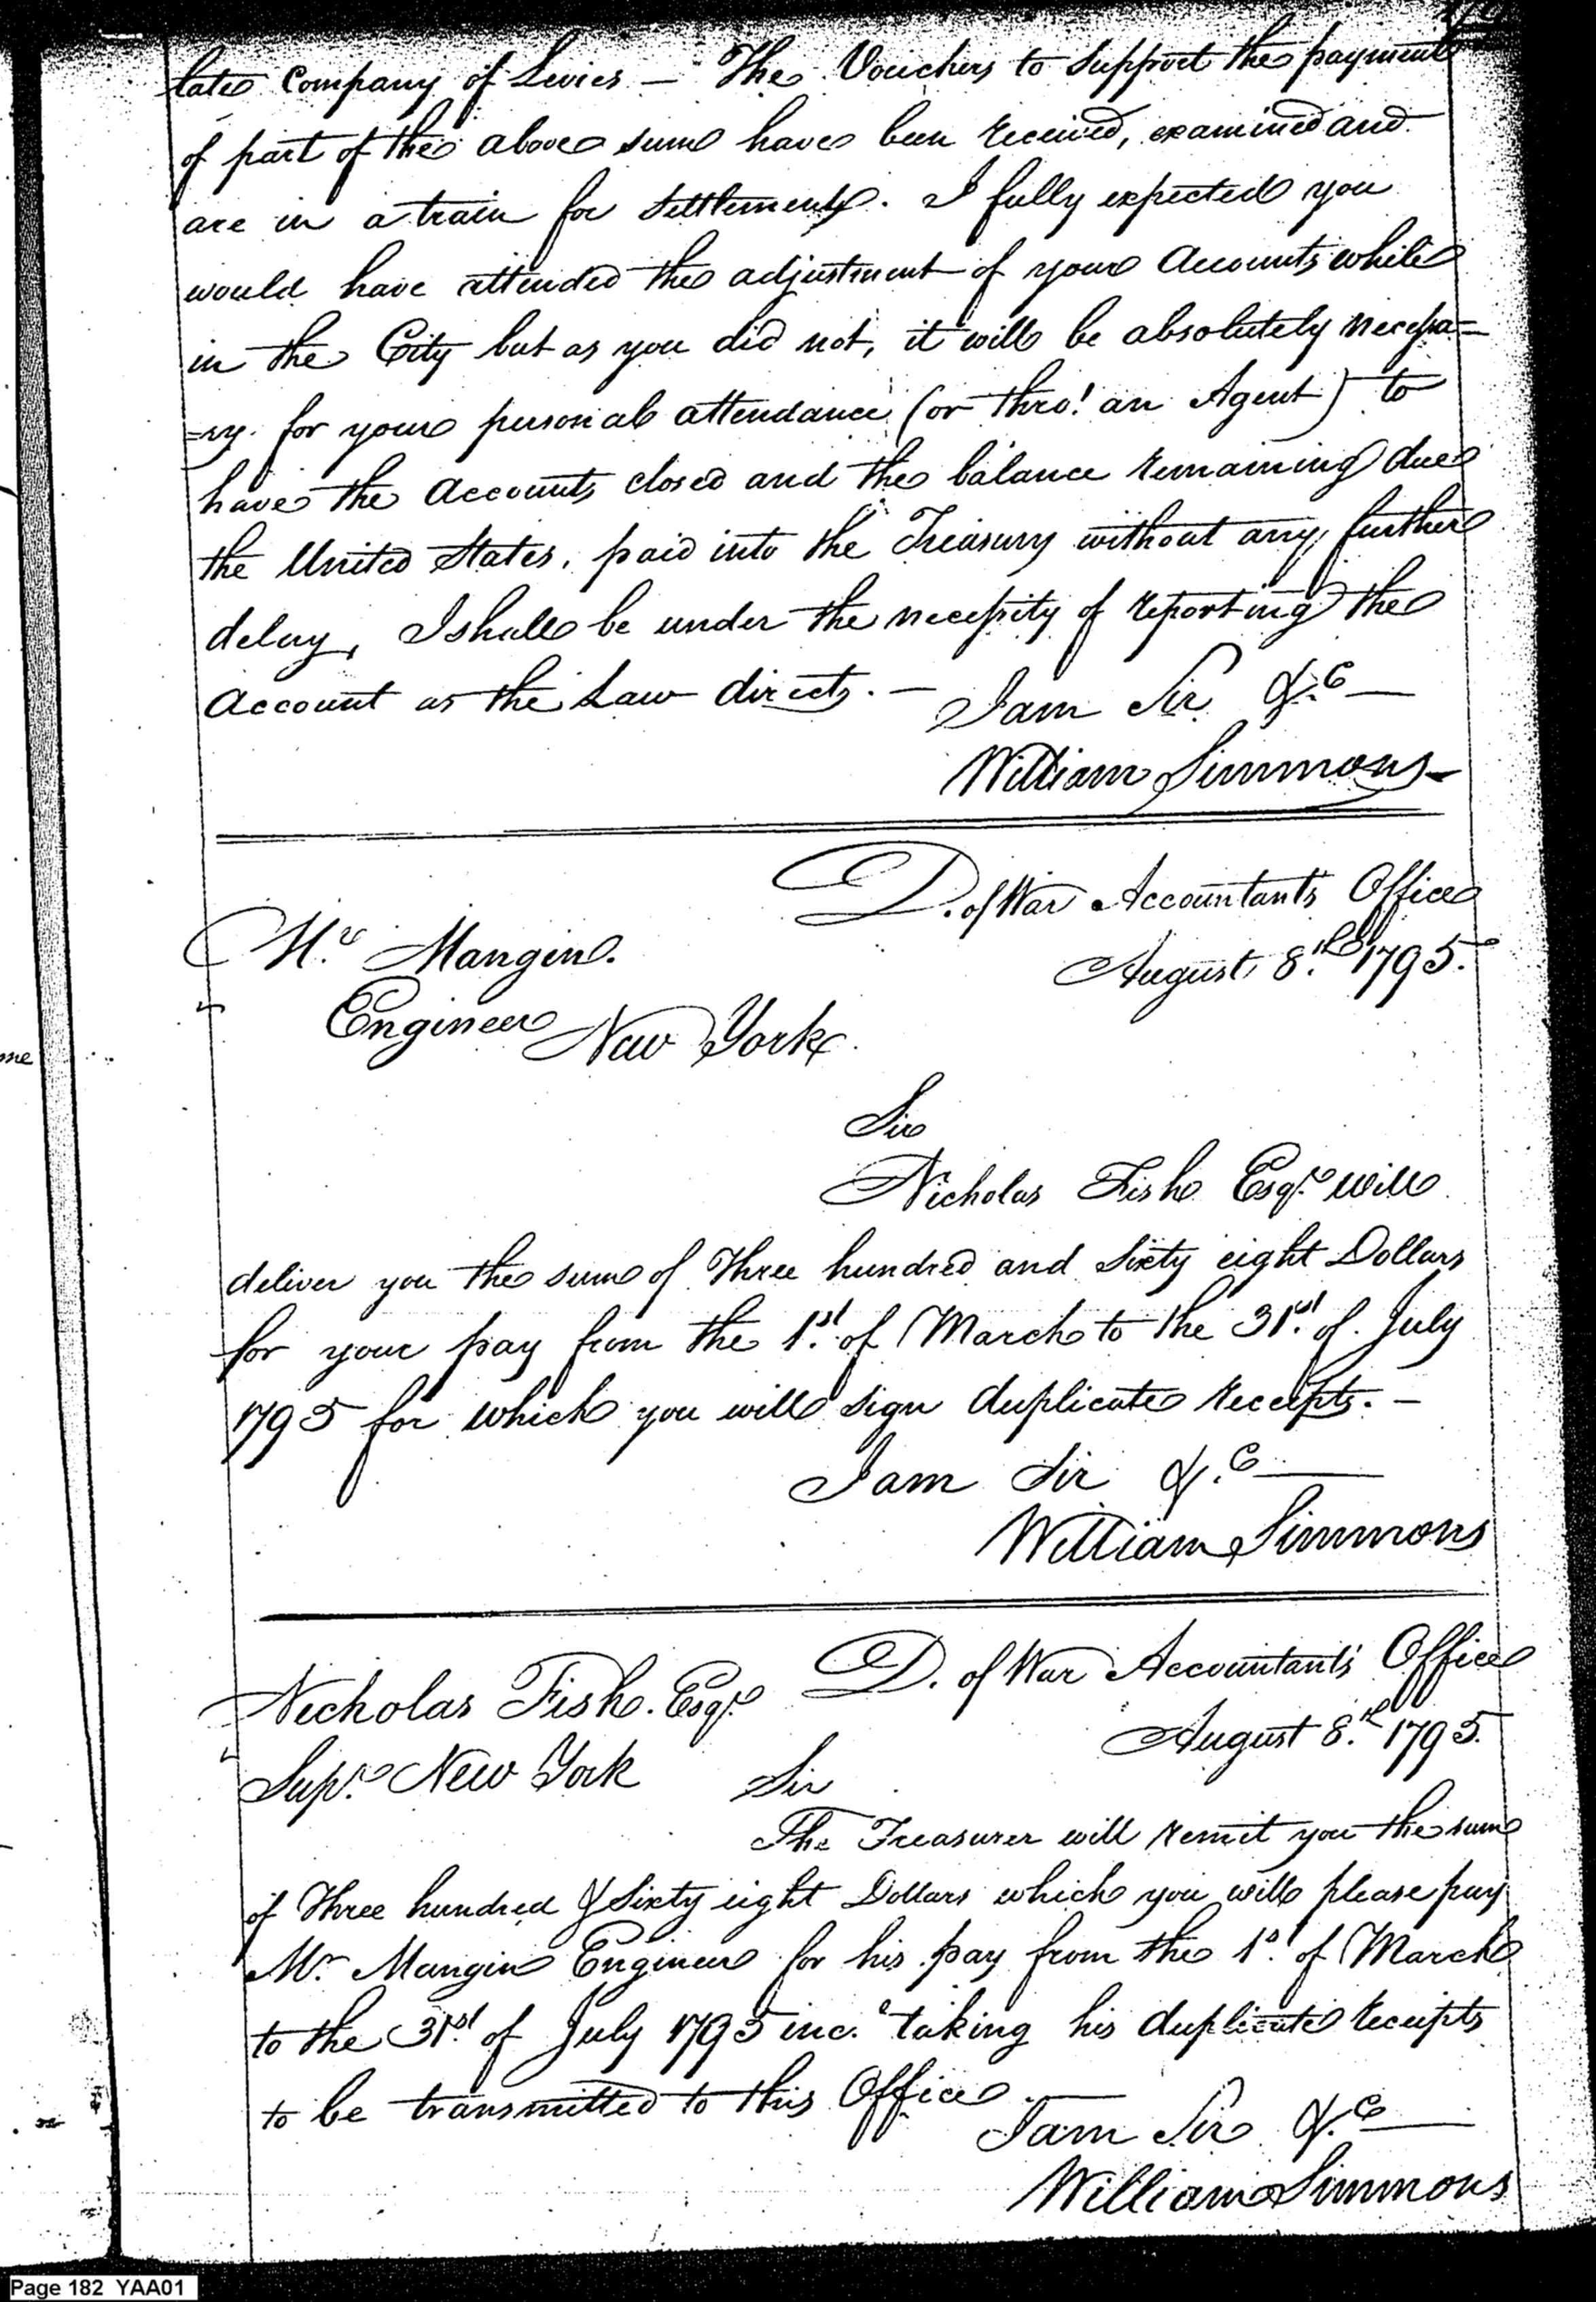 late Company of Levies — The Vouchers to support the payment
of part of the above sum have been received, examined and
are in a train for settlement. I fully expected you
would have attended the adjustment of your Accounts while
in the City but as you did not, it will be absolutely necessa=
=ry for your personal attendance (or thro! an Agent) to
have the Accounts closed and the balance remaining due
the United States, paid into the Treasury without any further
delay, I shall be under the necessity of reporting the
Account as the Law directs. —
I am Sir &.c —
William Simmons
D. of War Accountants Office
August 8.th 1795.
M.r Mangin.
Engineer New York.
Sir
Nicholas Fish Esq.r will
deliver you the sum of Three hundred and Sixty eight Dollars
for your pay from the 1.st of March to the 31.st of July
1795 for which you will sign duplicate receipts. —
I am Sir &.c —
William Simmons
D. of War Accountants Office
August 8.th 1795.
Nicholas Fish. Esq.r
Sup.r New York
Sir
The Treasurer will remit you the sum
of Three hundred & Sixty eight Dollars which you will please pay
Mr. Mangin Engineer for his pay from the 1.st of March
to the 31.st of July 1795 inc. taking his duplicate receipts
to be transmitted to this Office. —
I am Sir &.c —
William Simmons
me
Page 182 YAA01